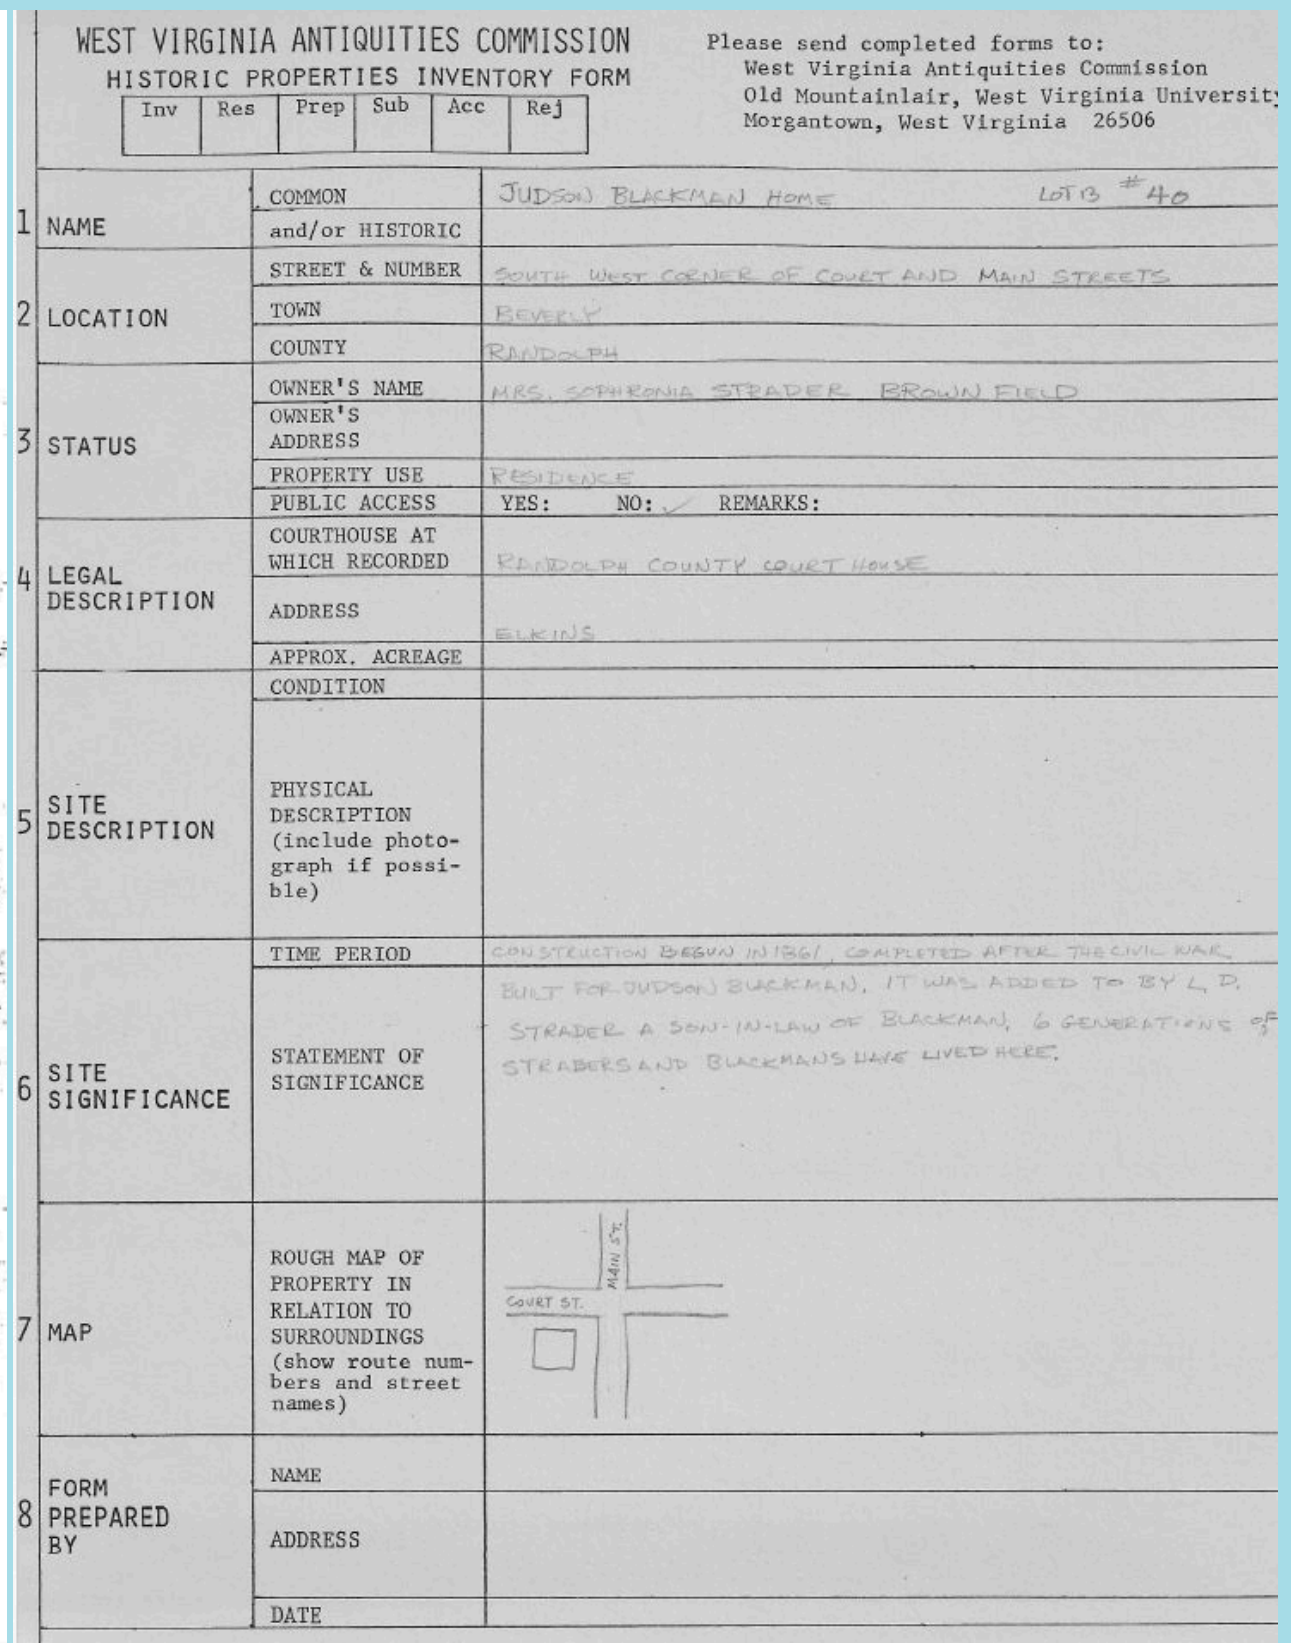 WEST VIRGINIA ANTIQUITIES COMMISSION
HISTORIC PROPERTIES INVENTORY FORM
Inv Res Prep Sub Acc Rej
Please send completed forms to:
West Virginia Antiquities Commission
Old Mountainlair, West Virginia University
Morgantown, West Virginia 26506
1 NAME
COMMON JUDSON BLACKMAN HOME LOT 13 #40
and/or HISTORIC
2 LOCATION
STREET & NUMBER SOUTH WEST CORNER OF COURT AND MAIN STREETS
TOWN BEVERLY
COUNTY RANDOLPH
3 STATUS
OWNER'S NAME MRS. SOPHRONIA STRADER BROWN FIELD
OWNER'S
ADDRESS
PROPERTY USE RESIDENCE
PUBLIC ACCESS YES: NO: ✓ REMARKS:
4 LEGAL
DESCRIPTION
COURTHOUSE AT
WHICH RECORDED RANDOLPH COUNTY COURT HOUSE
ADDRESS
ELKINS
APPROX. ACREAGE
5 SITE
DESCRIPTION
CONDITION
PHYSICAL
DESCRIPTION
(include photo-
graph if possi-
ble)
6 SITE
SIGNIFICANCE
TIME PERIOD CONSTRUCTION BEGUN IN 1861, COMPLETED AFTER THE CIVIL WAR
STATEMENT OF
SIGNIFICANCE
BUILT FOR JUDSON BLACKMAN. IT WAS ADDED TO BY L. D.
STRADER A SON-IN-LAW OF BLACKMAN. 6 GENERATIONS OF
STRADERS AND BLACKMANS HAVE LIVED HERE.
7 MAP
ROUGH MAP OF
PROPERTY IN
RELATION TO
SURROUNDINGS
(show route num-
bers and street
names)
MAIN ST.
COURT ST.
8 FORM
PREPARED
BY
NAME
ADDRESS
DATE